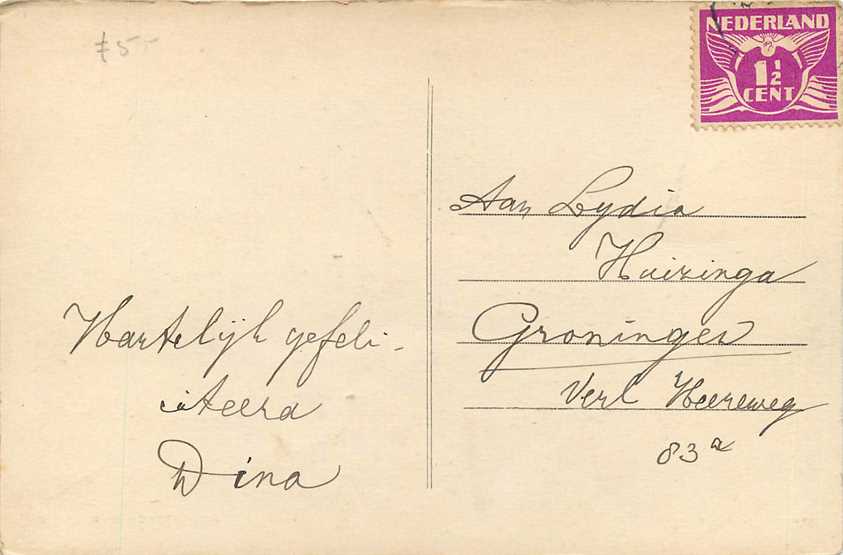 f 5.-
NEDERLAND
1 1/2
CENT
Aan Lydia
Huizinga
Groningen
Verl Heereweg
83a
Hartelijk gefeli-
citeerd
Dina